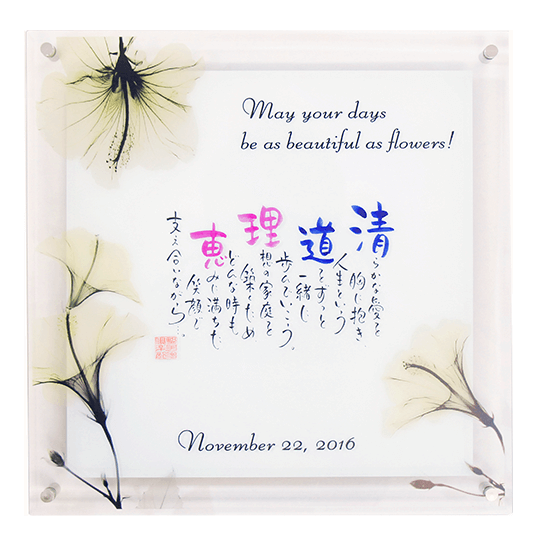 May your days
be as beautiful as flowers!
清らかな愛を
胸に抱き
人生という
道をずっと
一緒に
歩んでいこう
理想の家庭を
築くため
どんな時も
恵みに満ちた
笑顔で
支え合いながら。
November 22, 2016